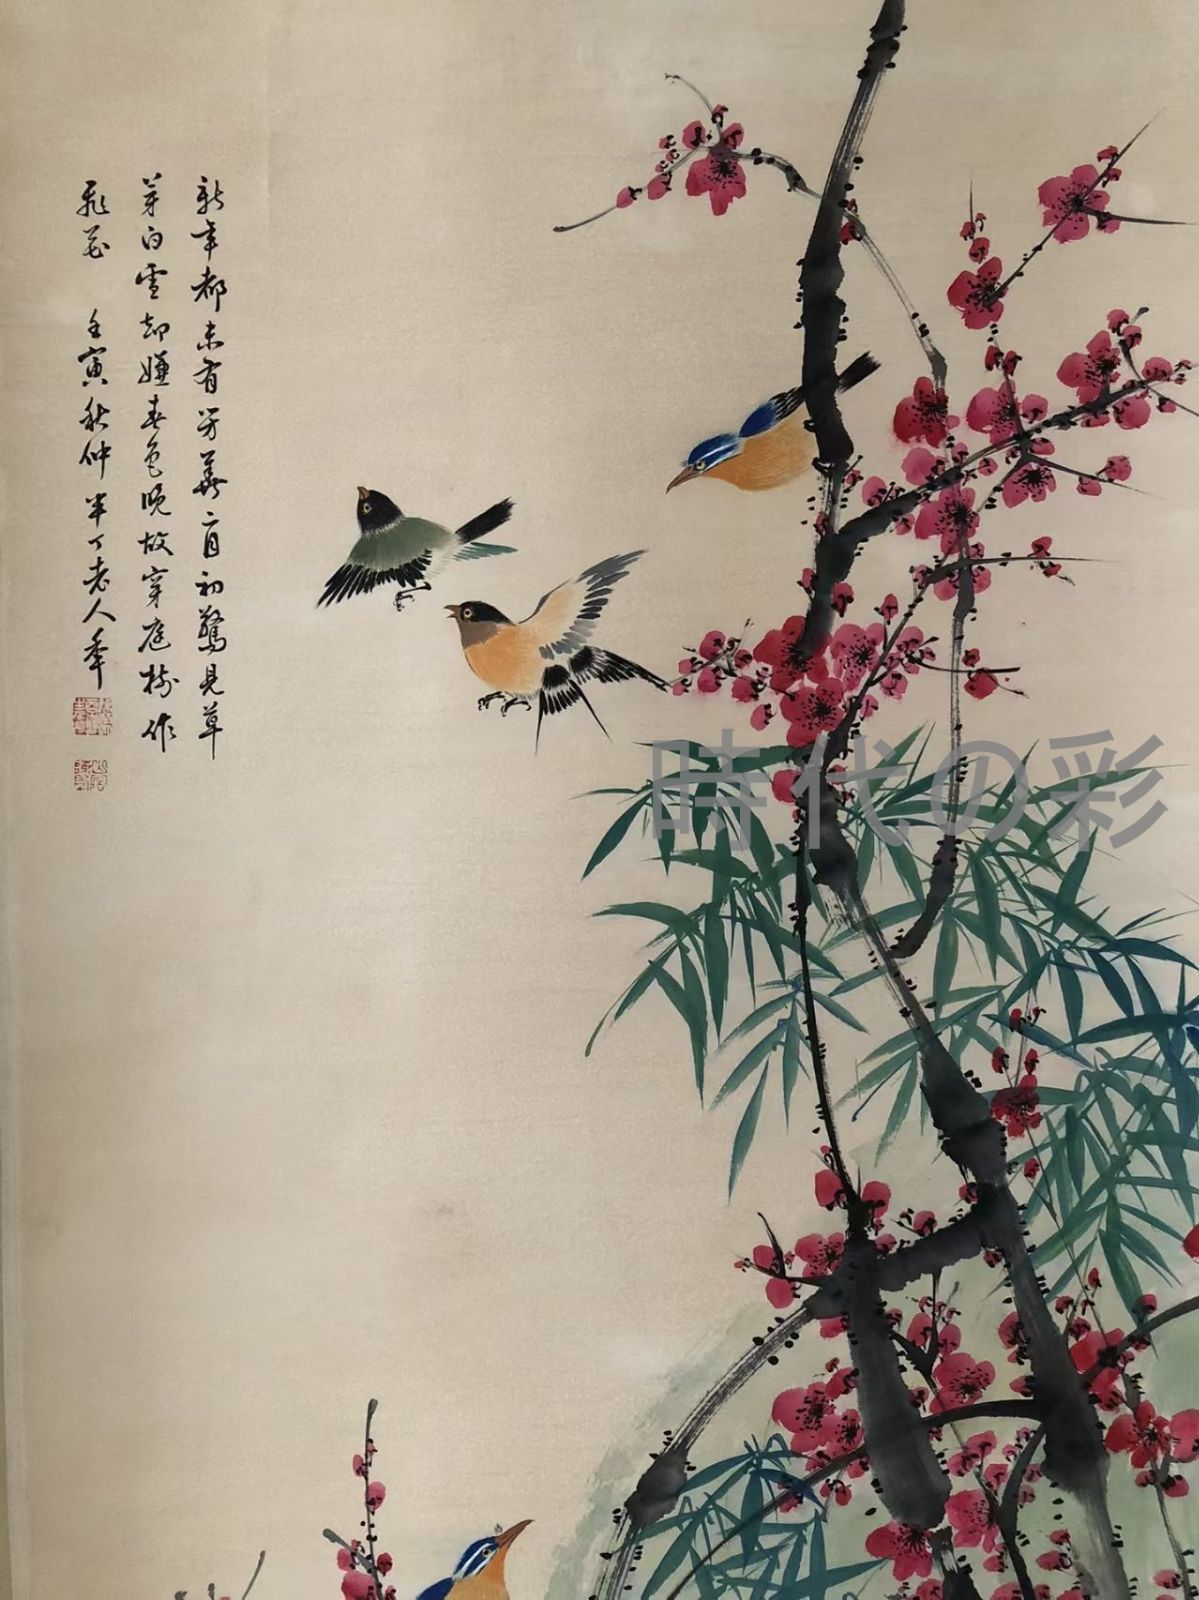 新年都未有芳華二月初驚見草
芽白雪却嫌春色晚故穿庭樹作
飛花 壬寅秋仲半丁老人年
時代の彩